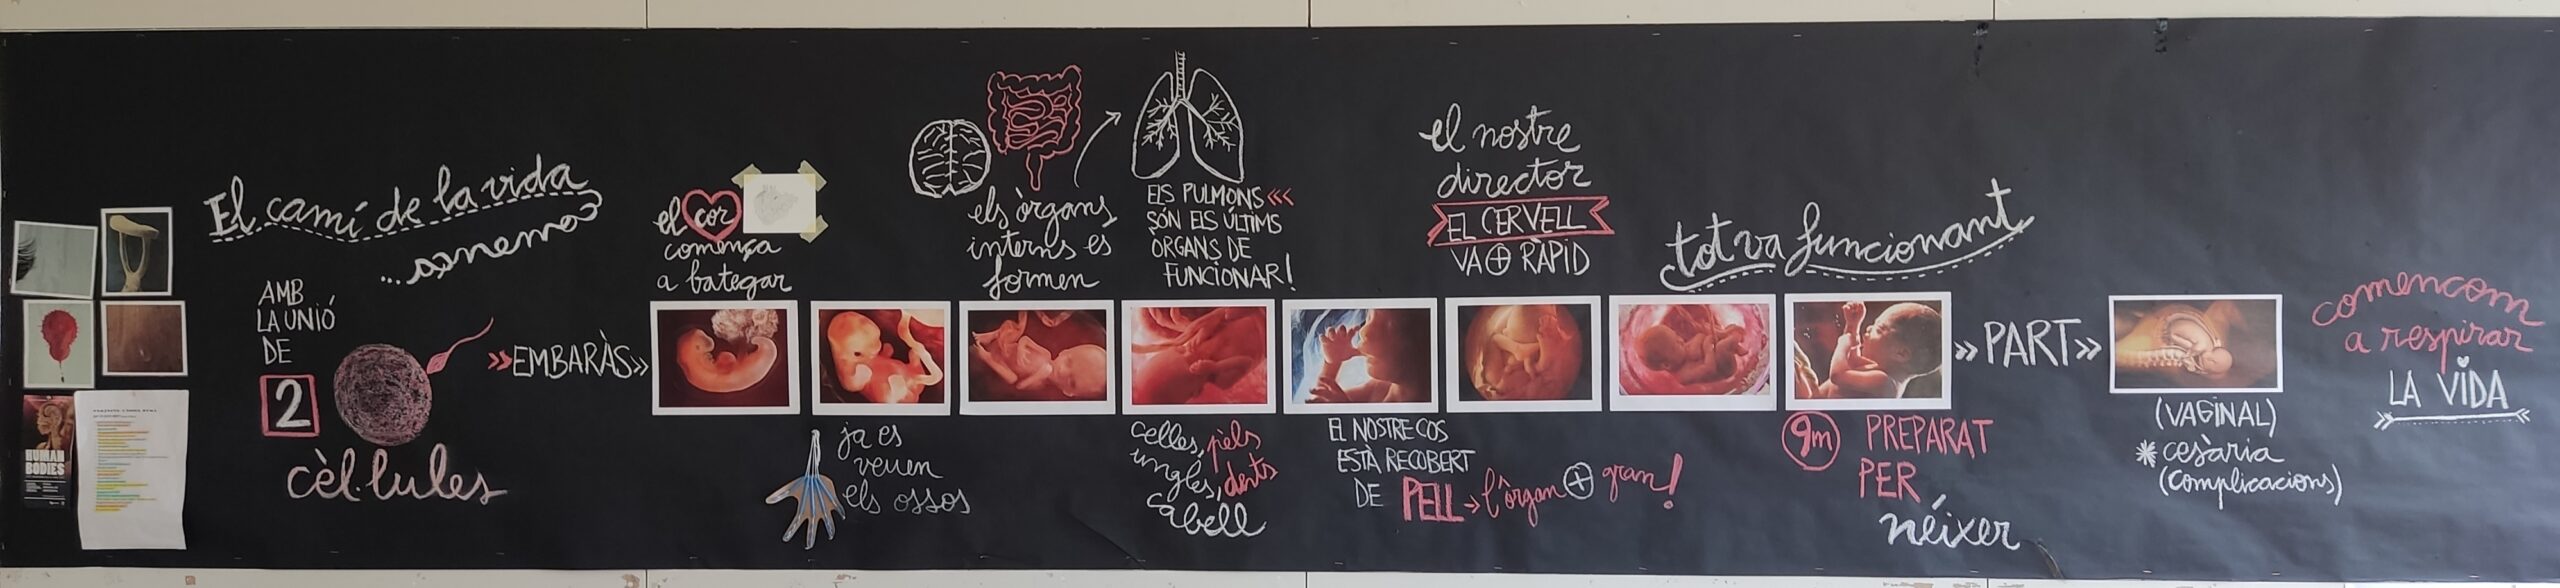 El camí de la vida
AMB
LA UNIÓ
DE
2
cèl·lules
HUMAN
BODIES
»EMBARÀS»
el cor
comença
a bategar
ja es
veuen
els ossos
els òrgans
interns es
formen
ELS PULMONS «<
SÓN ELS ÚLTIMS
ÒRGANS DE
FUNCIONAR!
celles, pèls
ungles, dents
cabell
EL NOSTRE COS
ESTÀ RECOBERT
DE PELL → l'òrgan + gran!
el nostre
director
EL CERVELL
VA + RÀPID
tot va funcionant
9m PREPARAT
PER
néixer
»PART»
(VAGINAL)
* cesària
(complicacions)
comencem
a respirar
LA VIDA